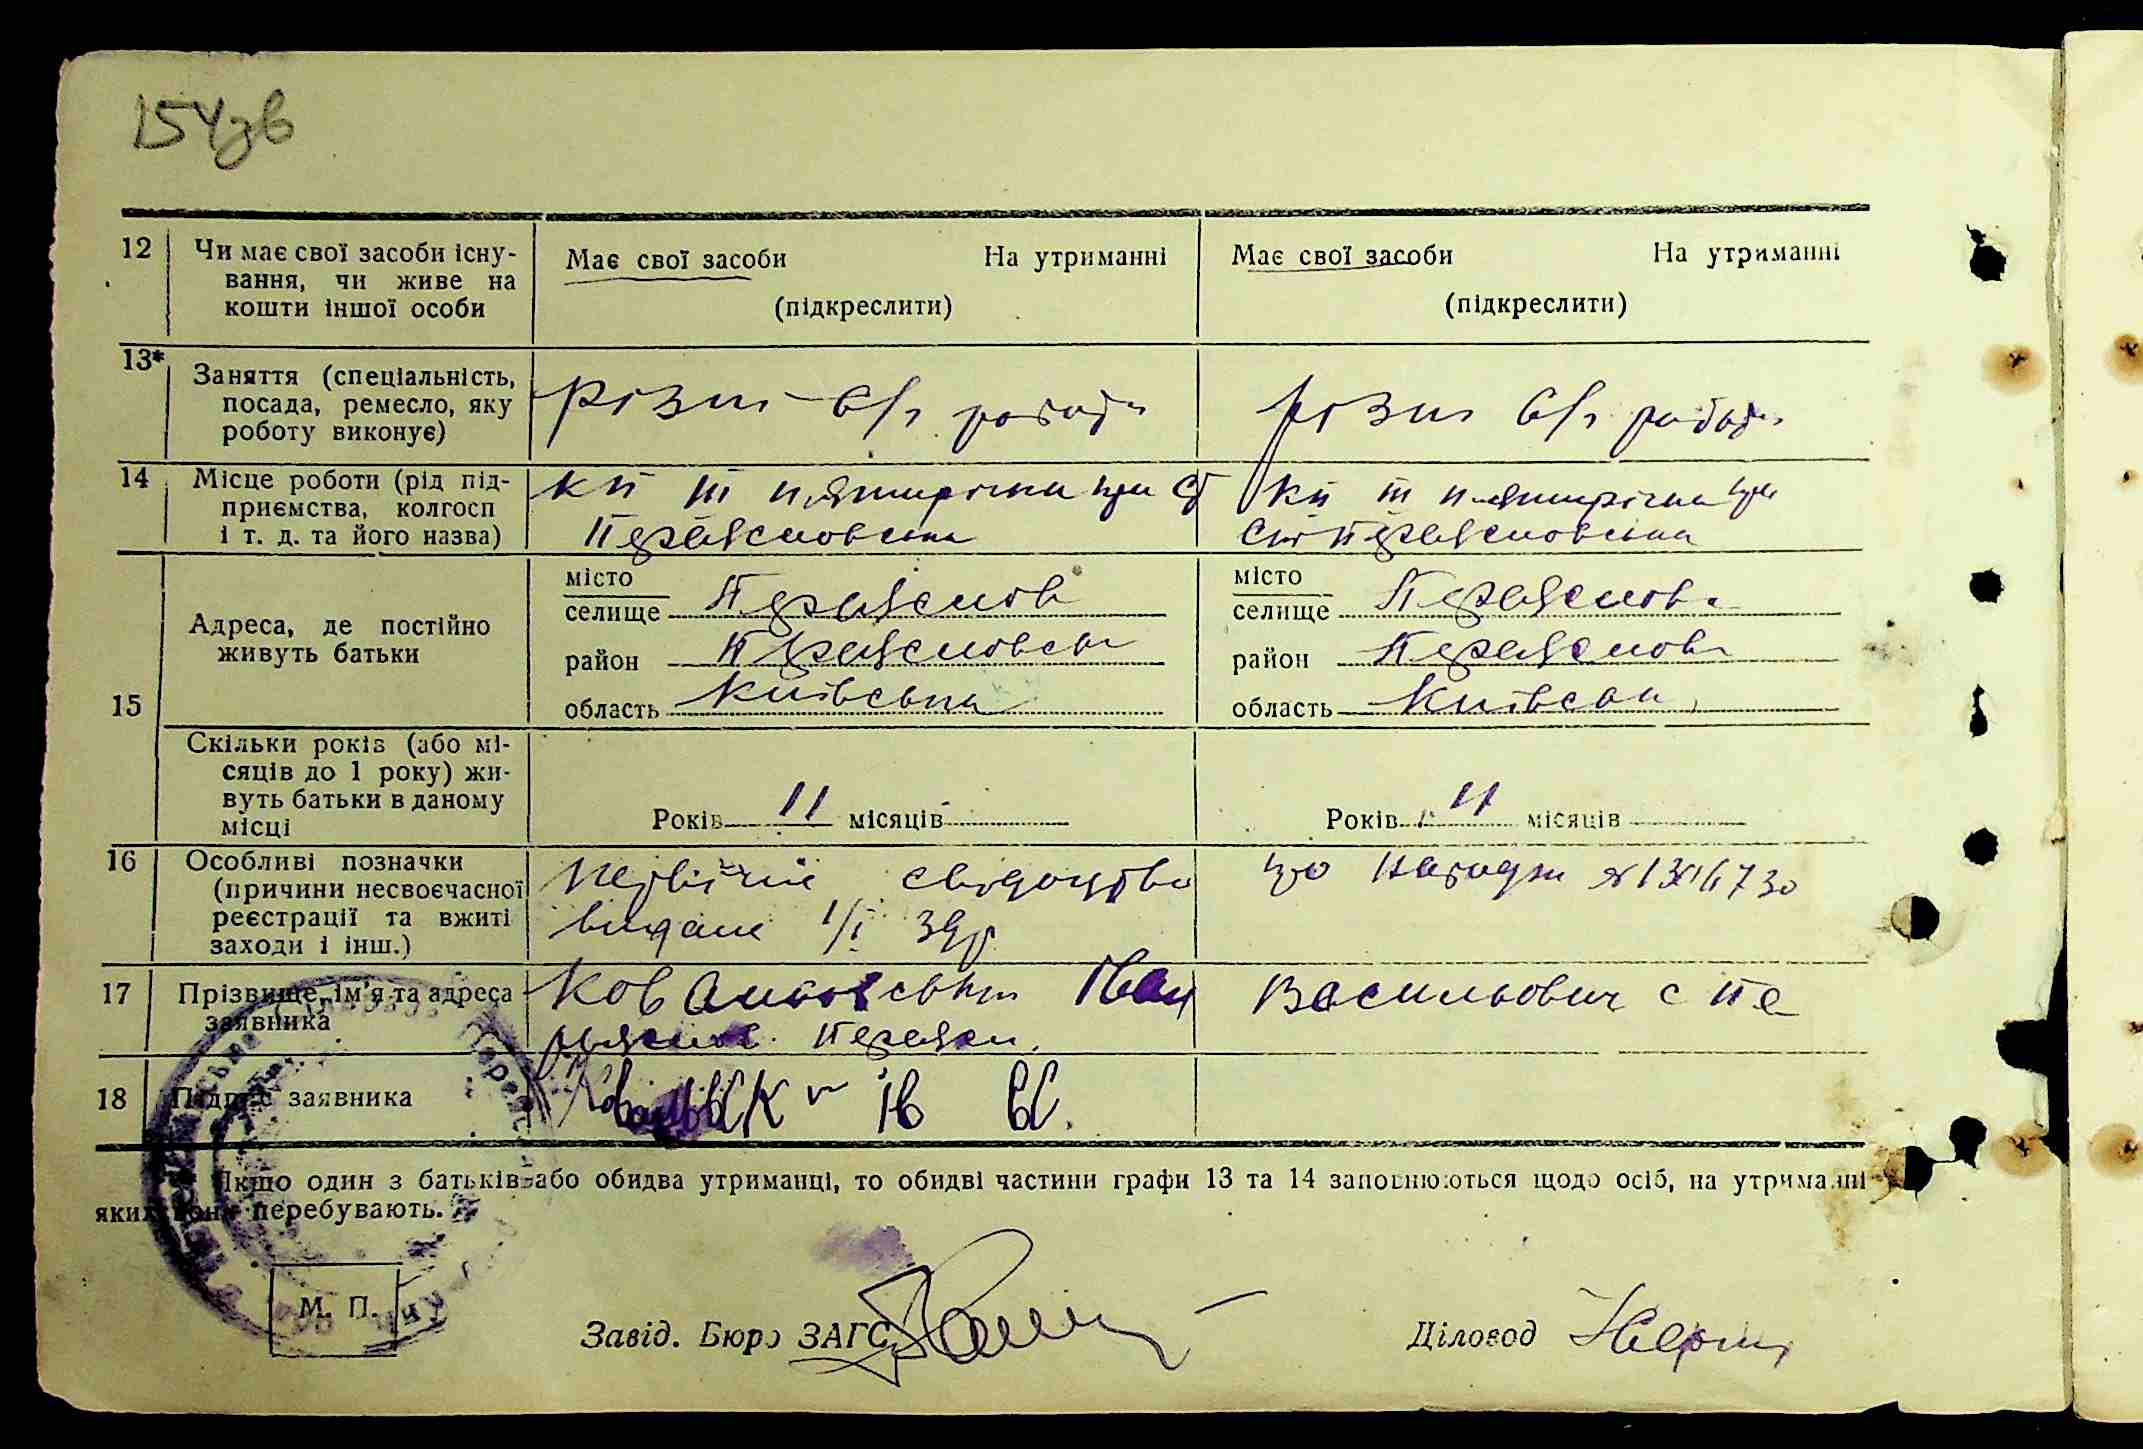 154зв
12 Чи має свої засоби існу- Має свої засоби На утриманні Має свої засоби На утриманні
вання, чи живе на
кошти іншої особи (підкреслити) (підкреслити)
13* Заняття (спеціальність,
посада, ремесло, яку різні с/г роботи різні с/г роботи
роботу виконує)
14 Місце роботи (рід під- КП ІІІ пятирічка при КП ІІІ пятирічка при
приємства, колгосп
і т. д. та його назва) Переяславська Переяславська
15 Адреса, де постійно живуть батьки
місто місто
селище Переяслов селище Переяслов
район Переясловськ район Переяслов
область Київська область Київська
Скільки років (або мі-
сяців до 1 року) жи-
вуть батьки в даному
місці Років 11 місяців Років 11 місяців
16 Особливі позначки
(причини несвоєчасної
реєстрації та вжиті
заходи і інш.)
первічне свідоцтво про народж
видане 1/I 39р
17 Прізвище, ім'я та адреса
заявника
Іван Васильович с Пе
18 Підпис заявника Ів Вс.
Якщо один з батьків або обидва утриманці, то обидві частини графи 13 та 14 заповнюються щодо осіб, на утриманні
яких вони перебувають.
М. П.
Завід. Бюро ЗАГС Діловод